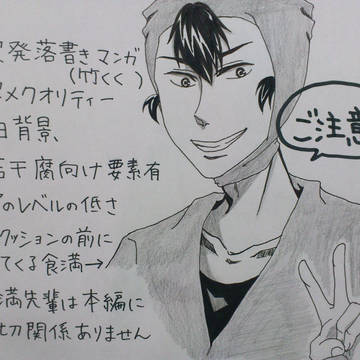 発落書きマンガ
(竹くく)
メクオリティー
背景
干腐向け要素有
のレベルの低さ
クッションの前に
てくる食満→
満先輩は本編に
切関係ありません
ご注意